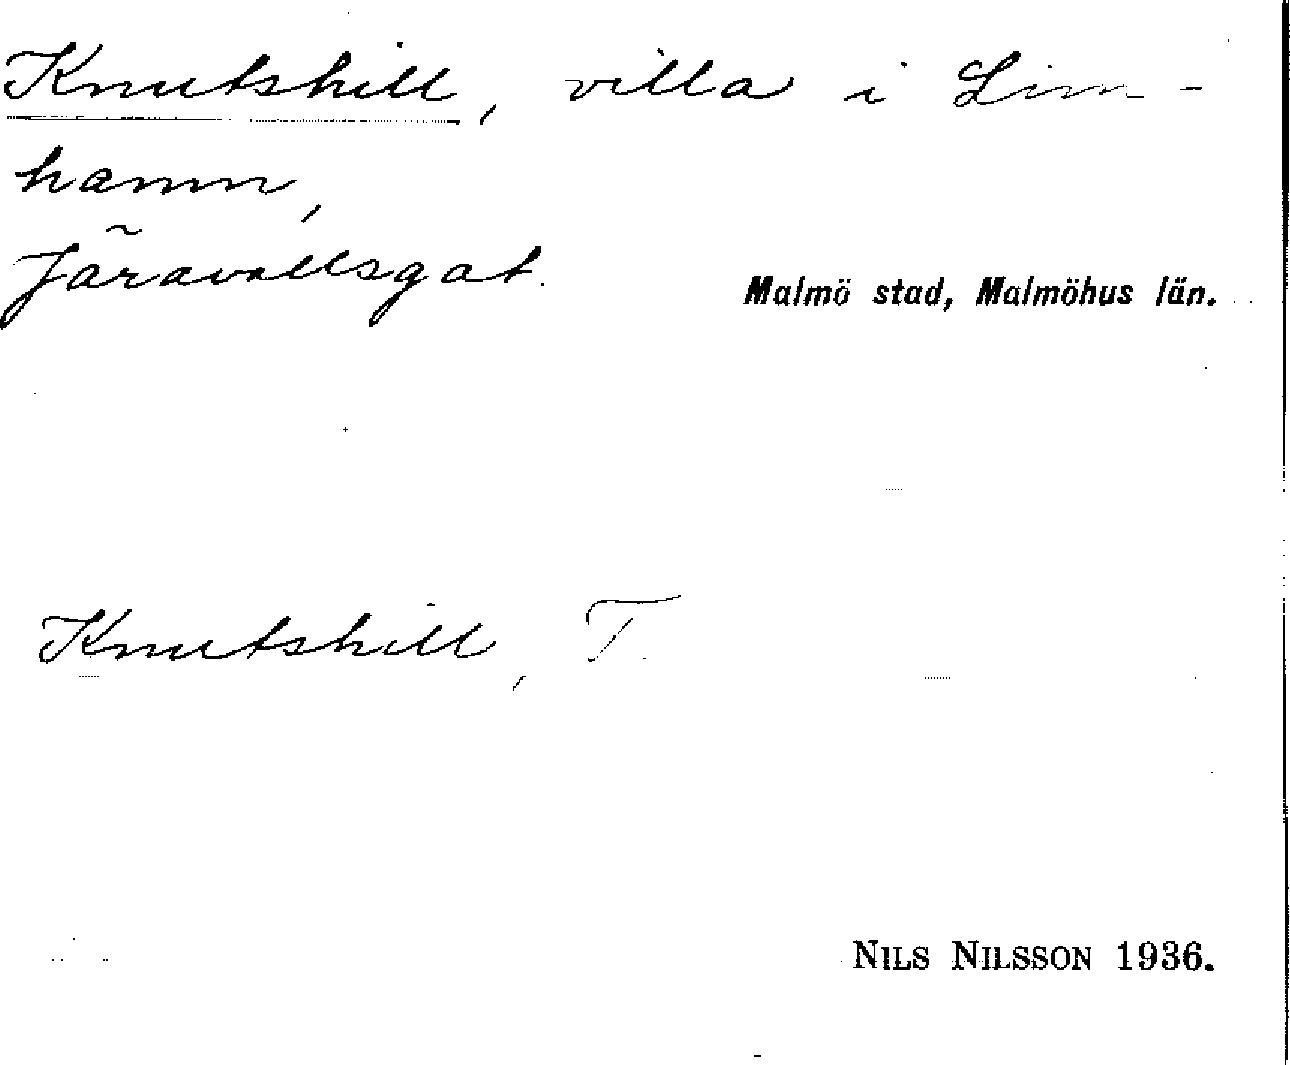 Knutshill, villa i Lim-
hamn,
Järavallsgat.
Malmö stad, Malmöhus län.
Knutshill, T.
NILS NILSSON 1936.